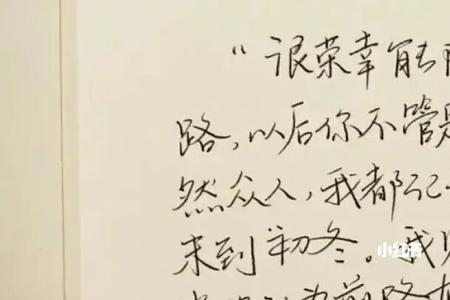 “很荣幸能
路，以后你不管是
然众人，我都记
来到初冬。我
小红书